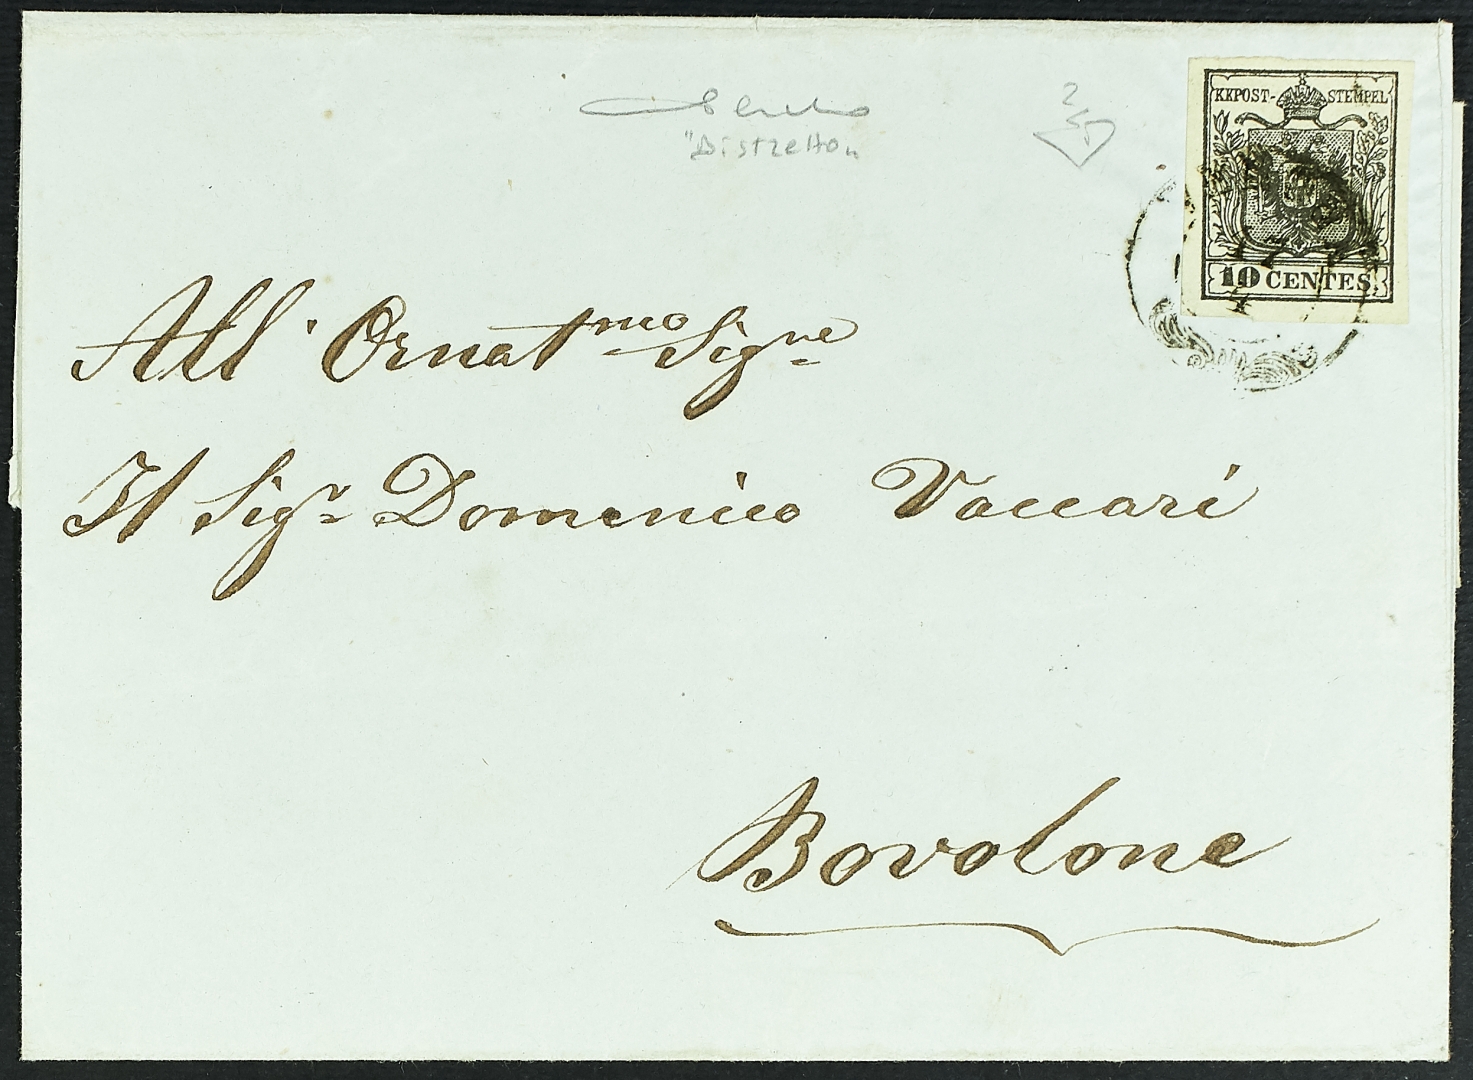 "Distretto"
KKPOST-STEMPEL
10 CENTES.
17
All' Ornatmo Signe
Il Sigr Domenico Vaccari
Bovolone